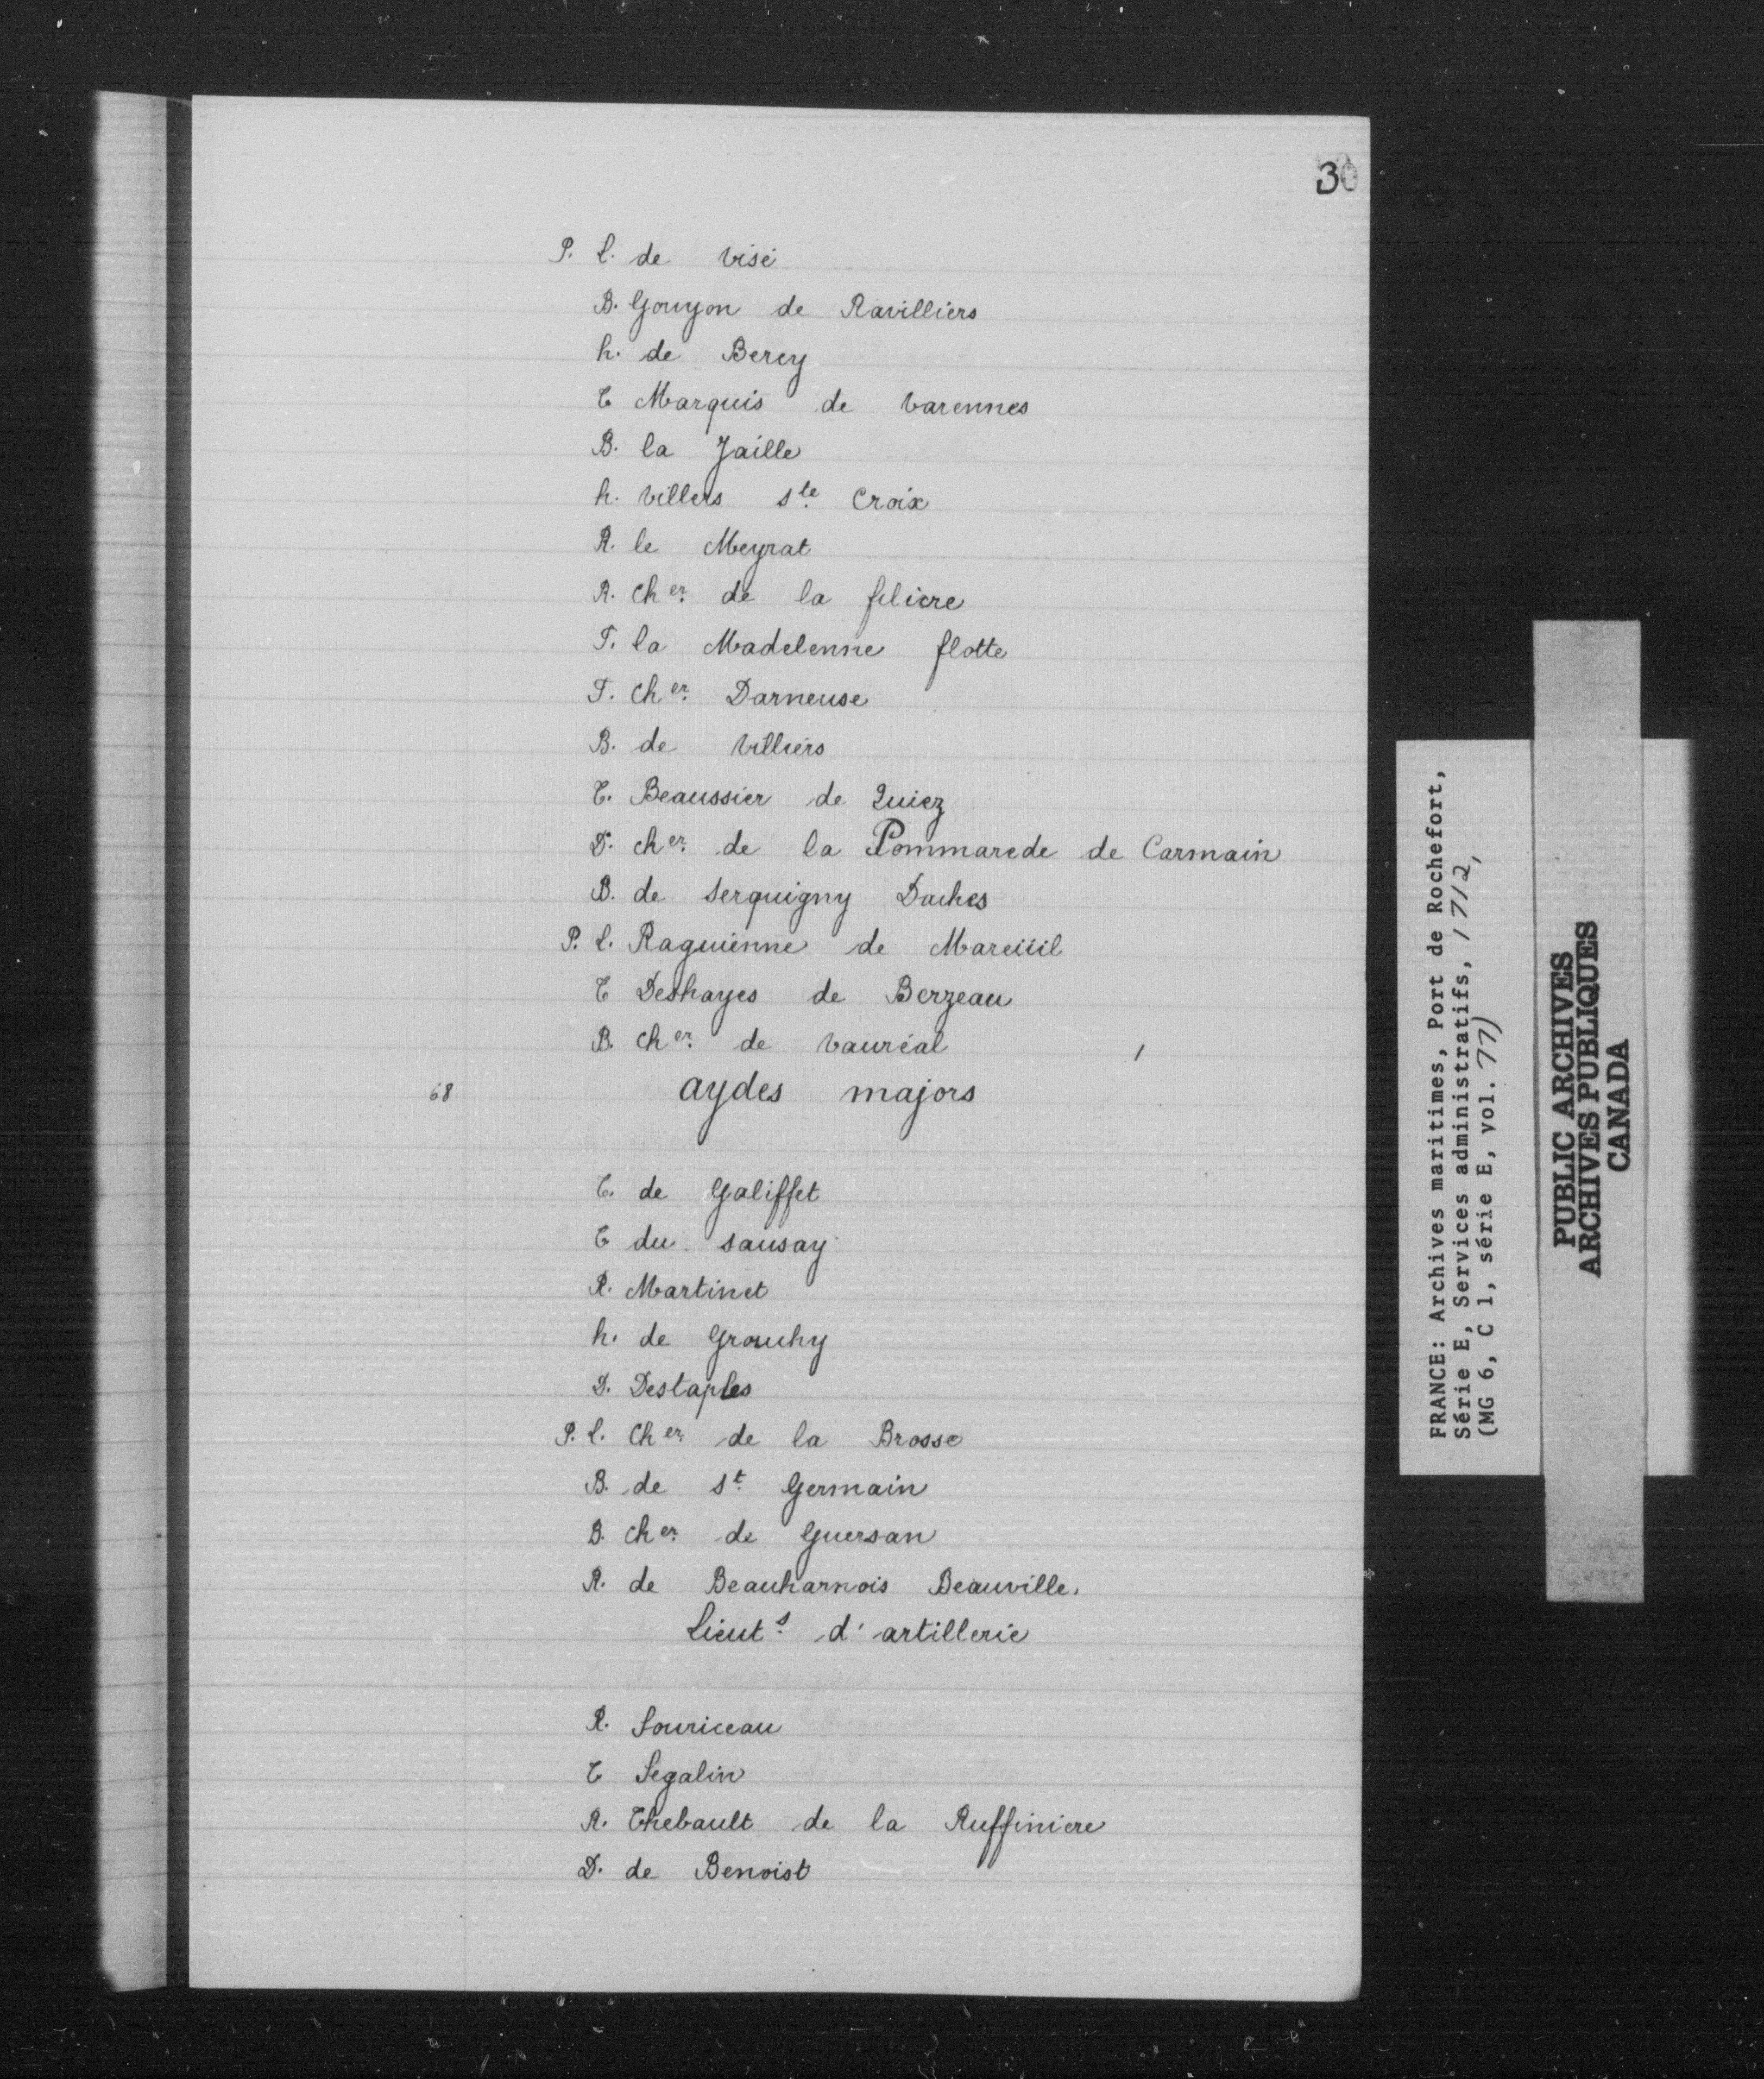 30
P. L. de visé
B. Gouyon de Ravilliers
h. de Bercy
T Marquis de varennes
B. la Jaille
h. villers ste. Croix
R. le Meyrat
R. Cher. de la filiere
T. la Madelenne flotte
T. Cher. Darneuse
B. de villiers
T. Beaussier de Quiez
D. cher. de la Pommarede de Carmain
B. de Serquigny Daches
P. L. Raguienne de Mareüil
T Deshayes de Berzeau
B. Cher. de vauréal
68 aydes majors
T. de Galiffet
T du sausay
R. Martinet
h. de Grouchy
D. Destaples
P. L. Cher. de la Brosse
B. de st. Germain
B. Cher. de Guersan
R. de Beauharnois Beauville.
Lieuts. d'artillerie
R. Souriceau
T Segalin
R. Thebault de la Ruffiniere
D. de Benoist
FRANCE: Archives maritimes, Port de Rochefort,
Série E, Services administratifs, 1712,
(MG 6, C 1, série E, vol. 77)
PUBLIC ARCHIVES
ARCHIVES PUBLIQUES
CANADA